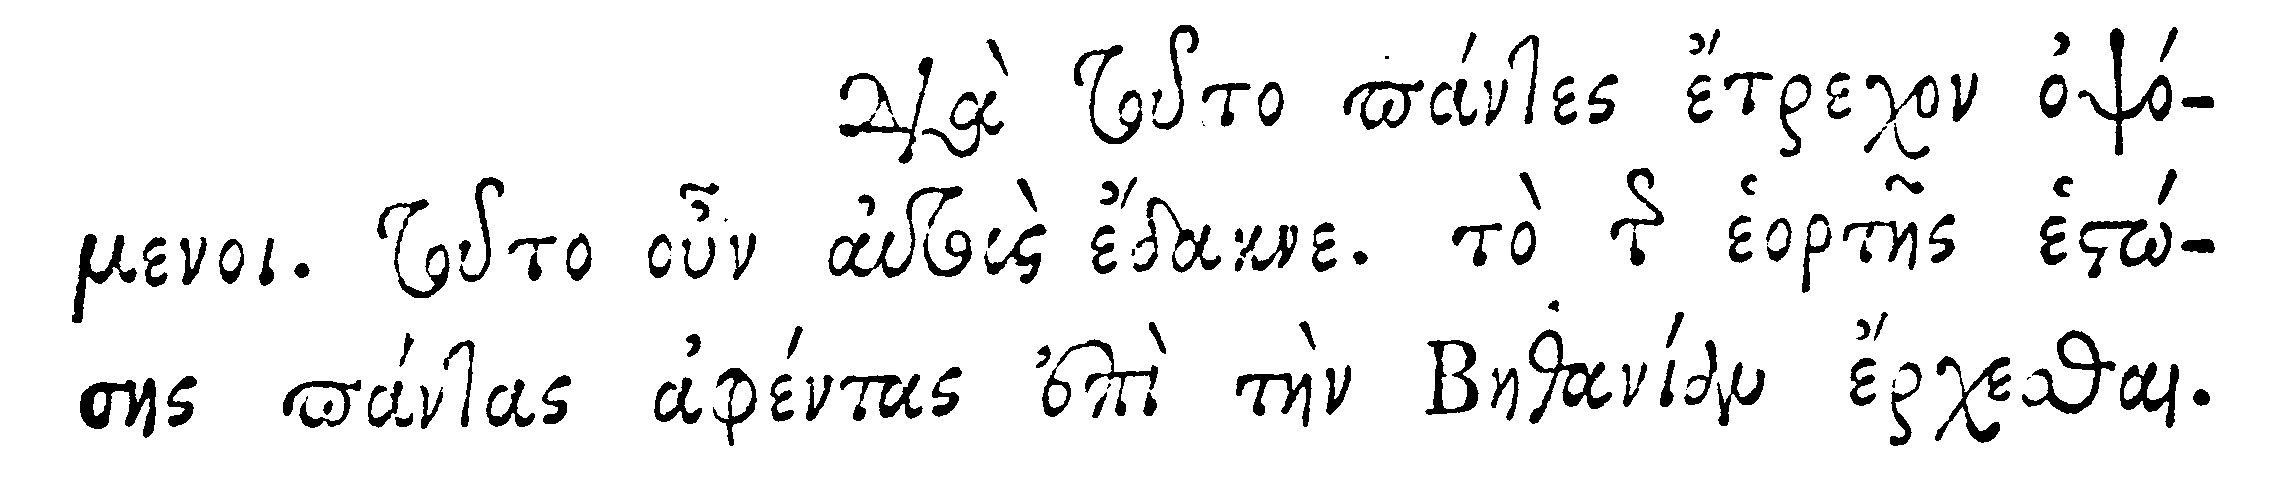 Διὰ τοῦτο πάντες ἔτρεχον ὀψό-
μενοι. τοῦτο οὖν αὐτοὺς ἔδακνε. τὸ τῆς ἑορτῆς ἑστώ-
σης πάντας ἀφέντας ἐπὶ τὴν Βηθανίαν ἔρχεσθαι.